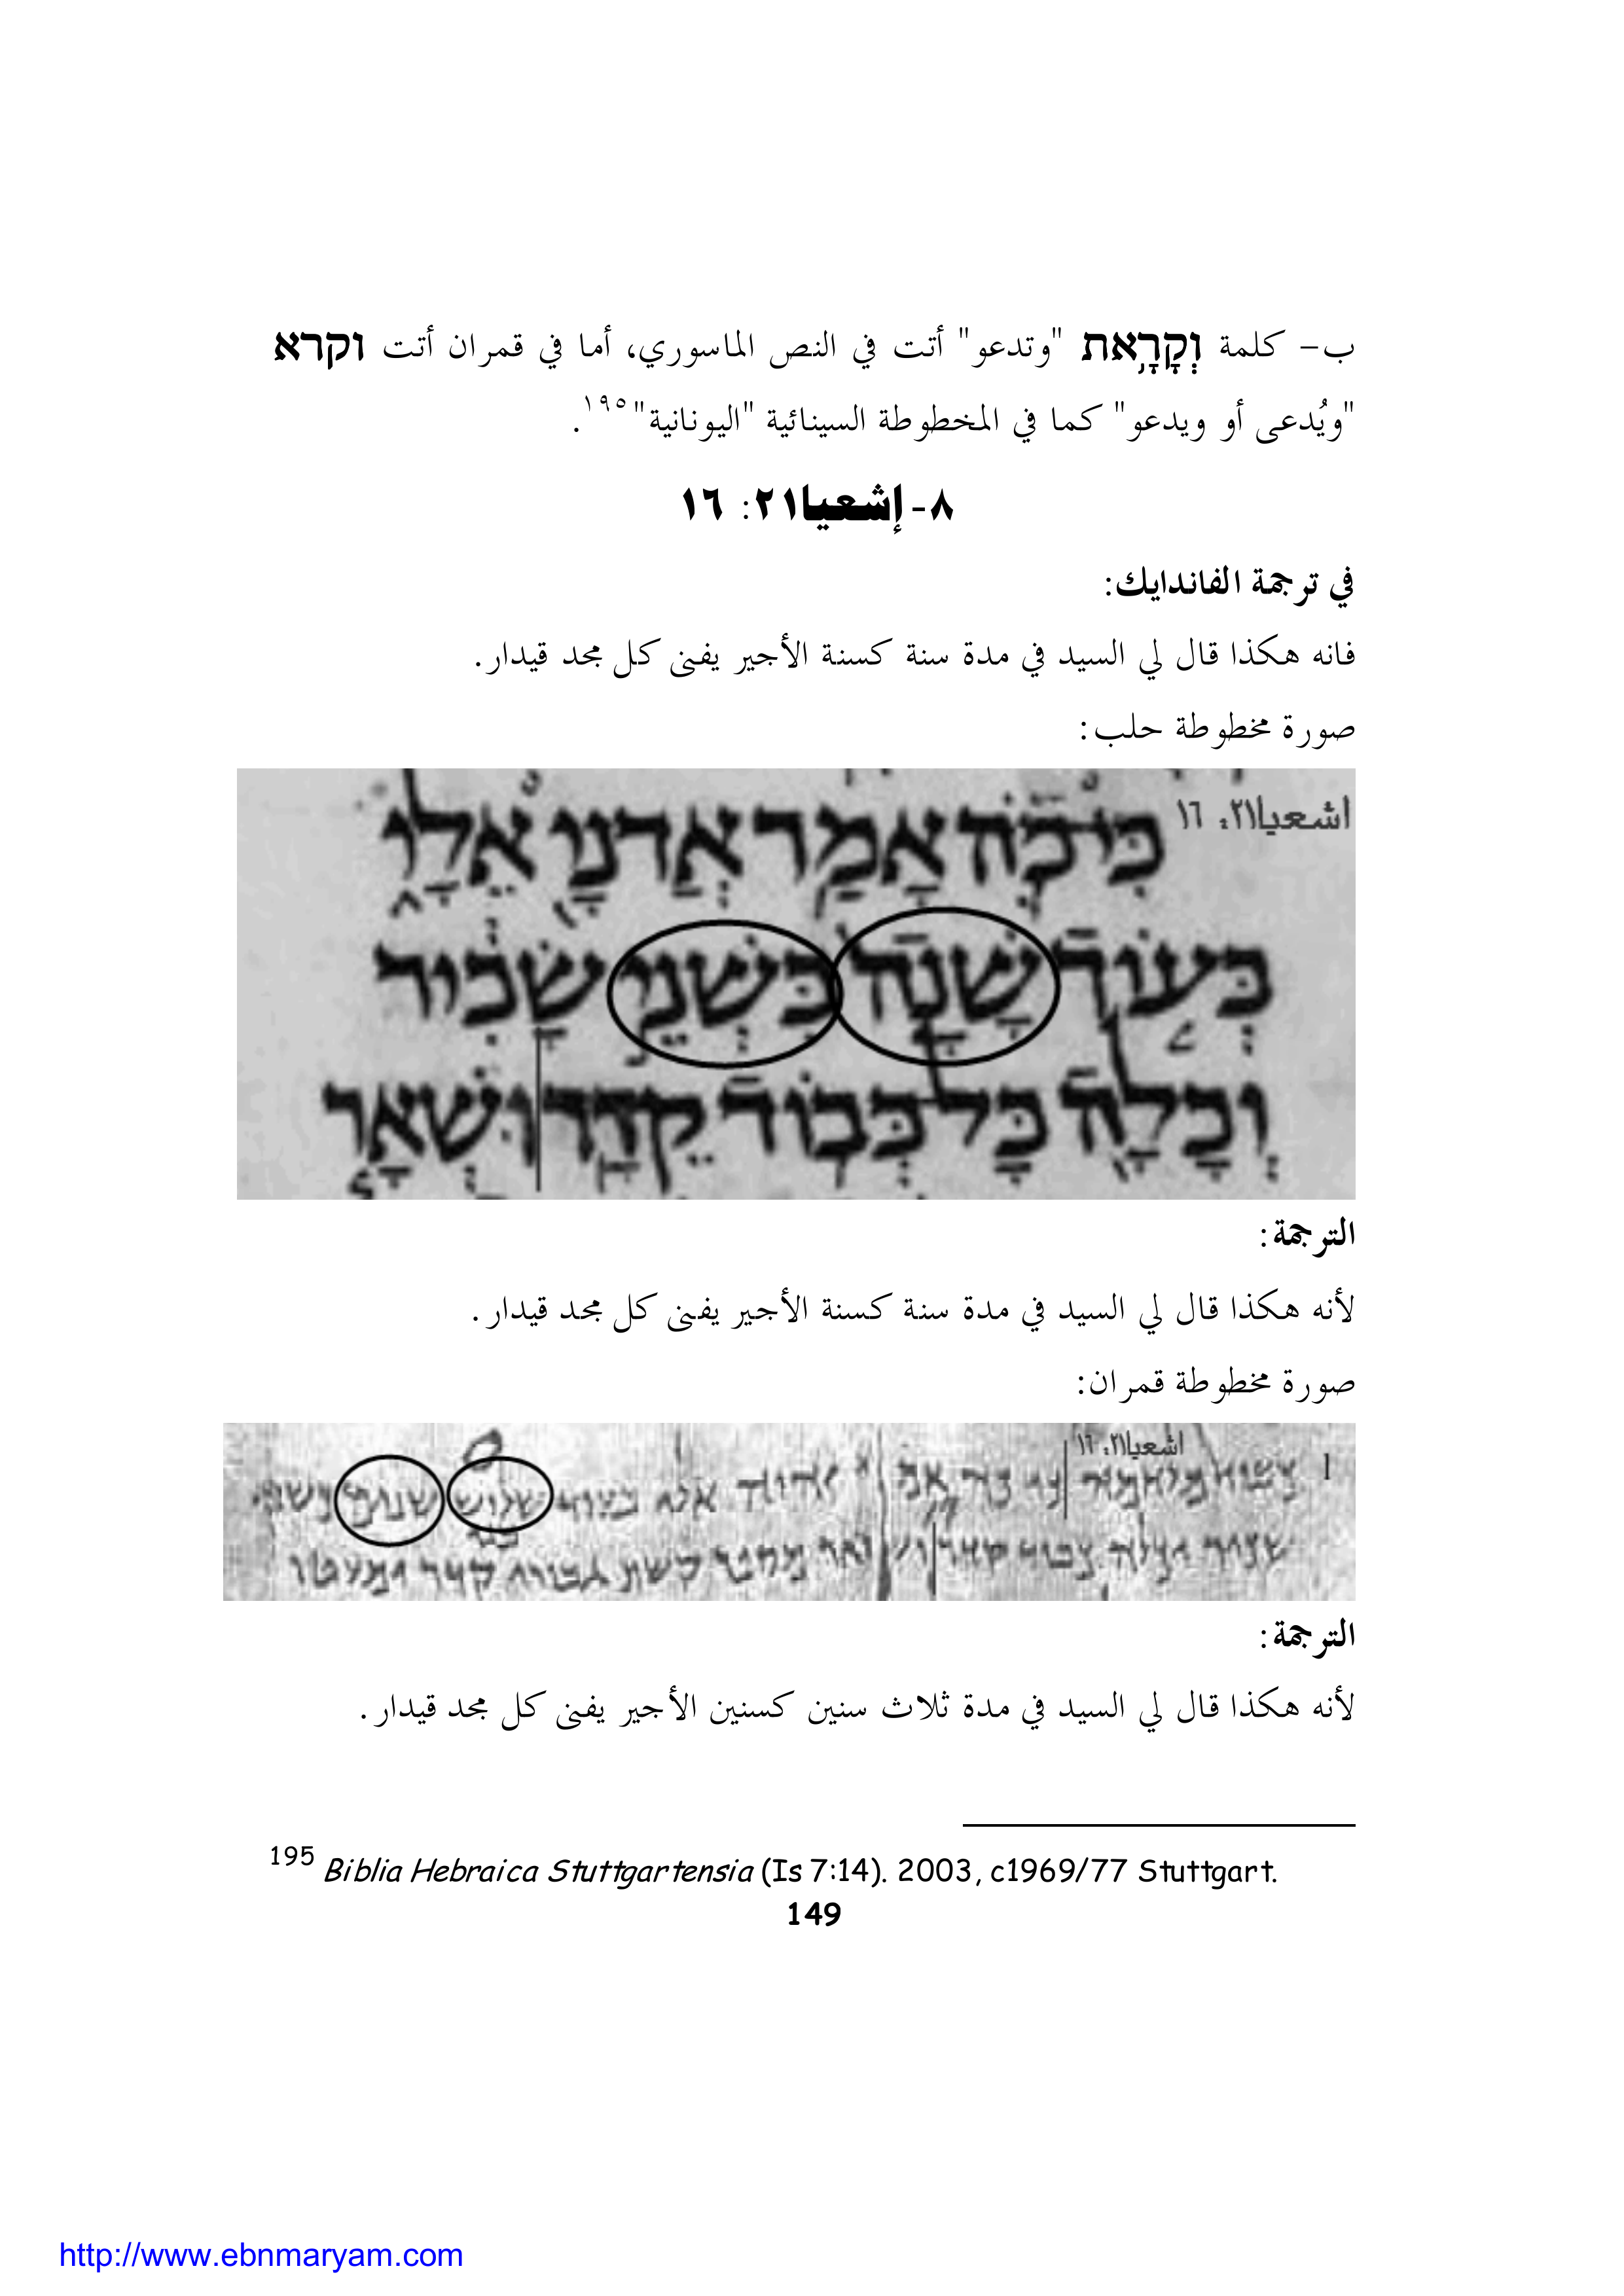 ب– كلمة וְקָרָ֥את "وتدعو" أتت في النص الماسوري، أما في قمران أتت וקרא
"ويُدعى أو ويدعو" كما في المخطوطة السينائية "اليونانية"١٩٥.
٨- إشعيا٢١: ١٦
في ترجمة الفاندايك:
فانه هكذا قال لي السيد في مدة سنة كسنة الأجير يفنى كل مجد قيدار.
صورة مخطوطة حلب:
اشعيا٢١: ١٦ כִּי־כֹה אָמַר אֲדֹנָי אֵלָי
בְּעוֹד שָׁנָה כִּשְׁנֵי שָׂכִיר
וְכָלָה כָּל כְּבוֹד קֵדָר וּשְׁאָר
الترجمة:
لأنه هكذا قال لي السيد في مدة سنة كسنة الأجير يفنى كل مجد قيدار.
صورة مخطوطة قمران:
اشعيا٢١: ١٦
שלוש
الترجمة:
لأنه هكذا قال لي السيد في مدة ثلاث سنين كسنين الأجير يفنى كل مجد قيدار.
195 Biblia Hebraica Stuttgartensia (Is 7:14). 2003, c1969/77 Stuttgart.
149
http://www.ebnmaryam.com